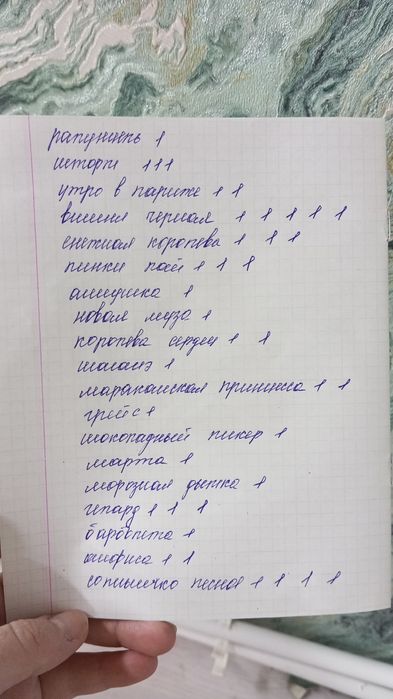 рапунцель 1
шторм 1 1 1
утро в париже 1 1
вишня черная 1 1 1 1 1
снежная королева 1 1 1
пинки пай 1 1 1
аннушка 1
новая муза 1
королева сердец 1 1
шаланэ 1
марокканская принцесса 1 1
грейс 1
шоколадный ликер 1
марта 1
морозная дымка 1
гепард 1 1 1
барбарита 1
анфиса 1 1
солнышко лесное 1 1 1 1